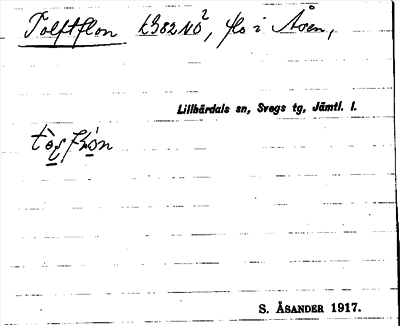 Tolftflon k382NÖ², flo i Åsen,
Lillhärdals sn, Svegs tg, Jämtl. l.
S. ÅSANDER 1917.